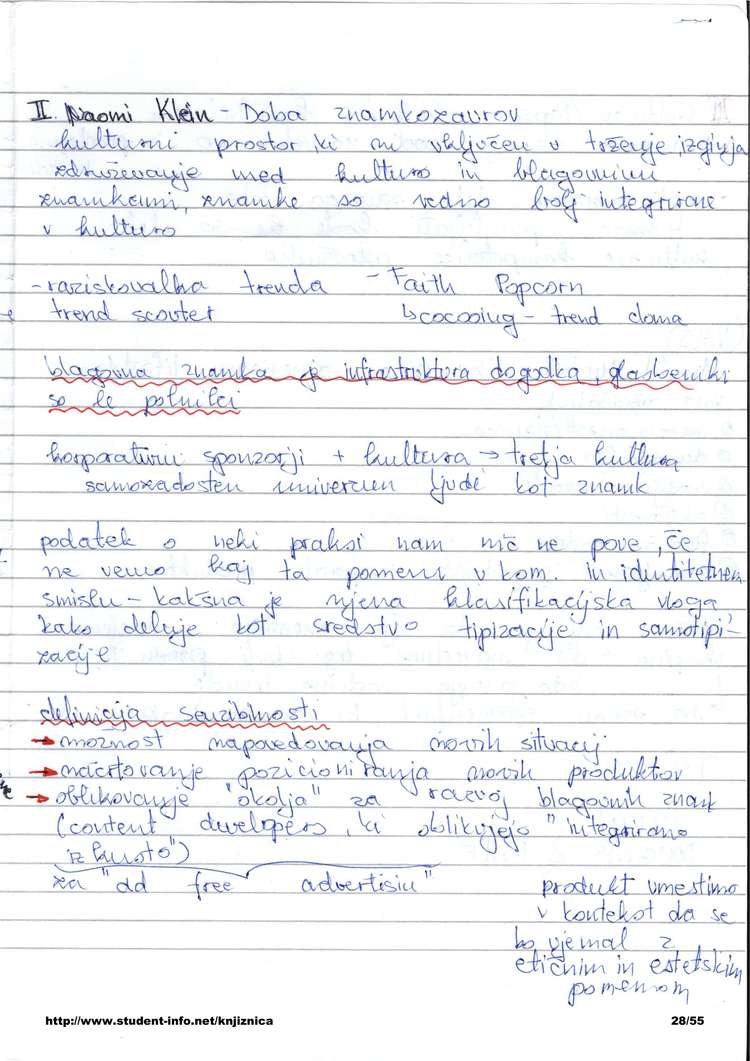 II. Naomi Klein - Doba znamkozavrov
kulturni prostor, ki ni vključen v trženje, izginja
združevanje med kulturo in blagovnimi
znamkami, znamke so vedno bolj integrirane
v kulturo
- raziskovalka trenda - Faith Popcorn
trend scouter ↳ cocooing - trend doma
blagovna znamka je infrastruktura dogodka, glasbeniki
so le polnilci
korporativni sponzorji + kultura → tretja kultura
samozadosten univerzum ljudi kot znamk
podatek o neki praksi nam nič ne pove, če
ne vemo kaj ta pomeni v kom. in identitetnem
smislu - kakšna je njena klasifikacijska vloga,
kako deluje kot sredstvo tipizacije in samotipi-
zacije
definicija senzibilnosti
→ možnost napovedovanja novih situacij
→ načrtovanje pozicioniranja novih produktov
→ oblikovanje "okolja" za razvoj blagovnih znamk
(content developers, ki oblikujejo "integrirano
izkustvo")
za "dd free advertisiu"
produkt umestimo
v kontekst da se
bo ujemal z
etičnim in estetskim
pomenom
http://www.student-info.net/knjiznica 28/55